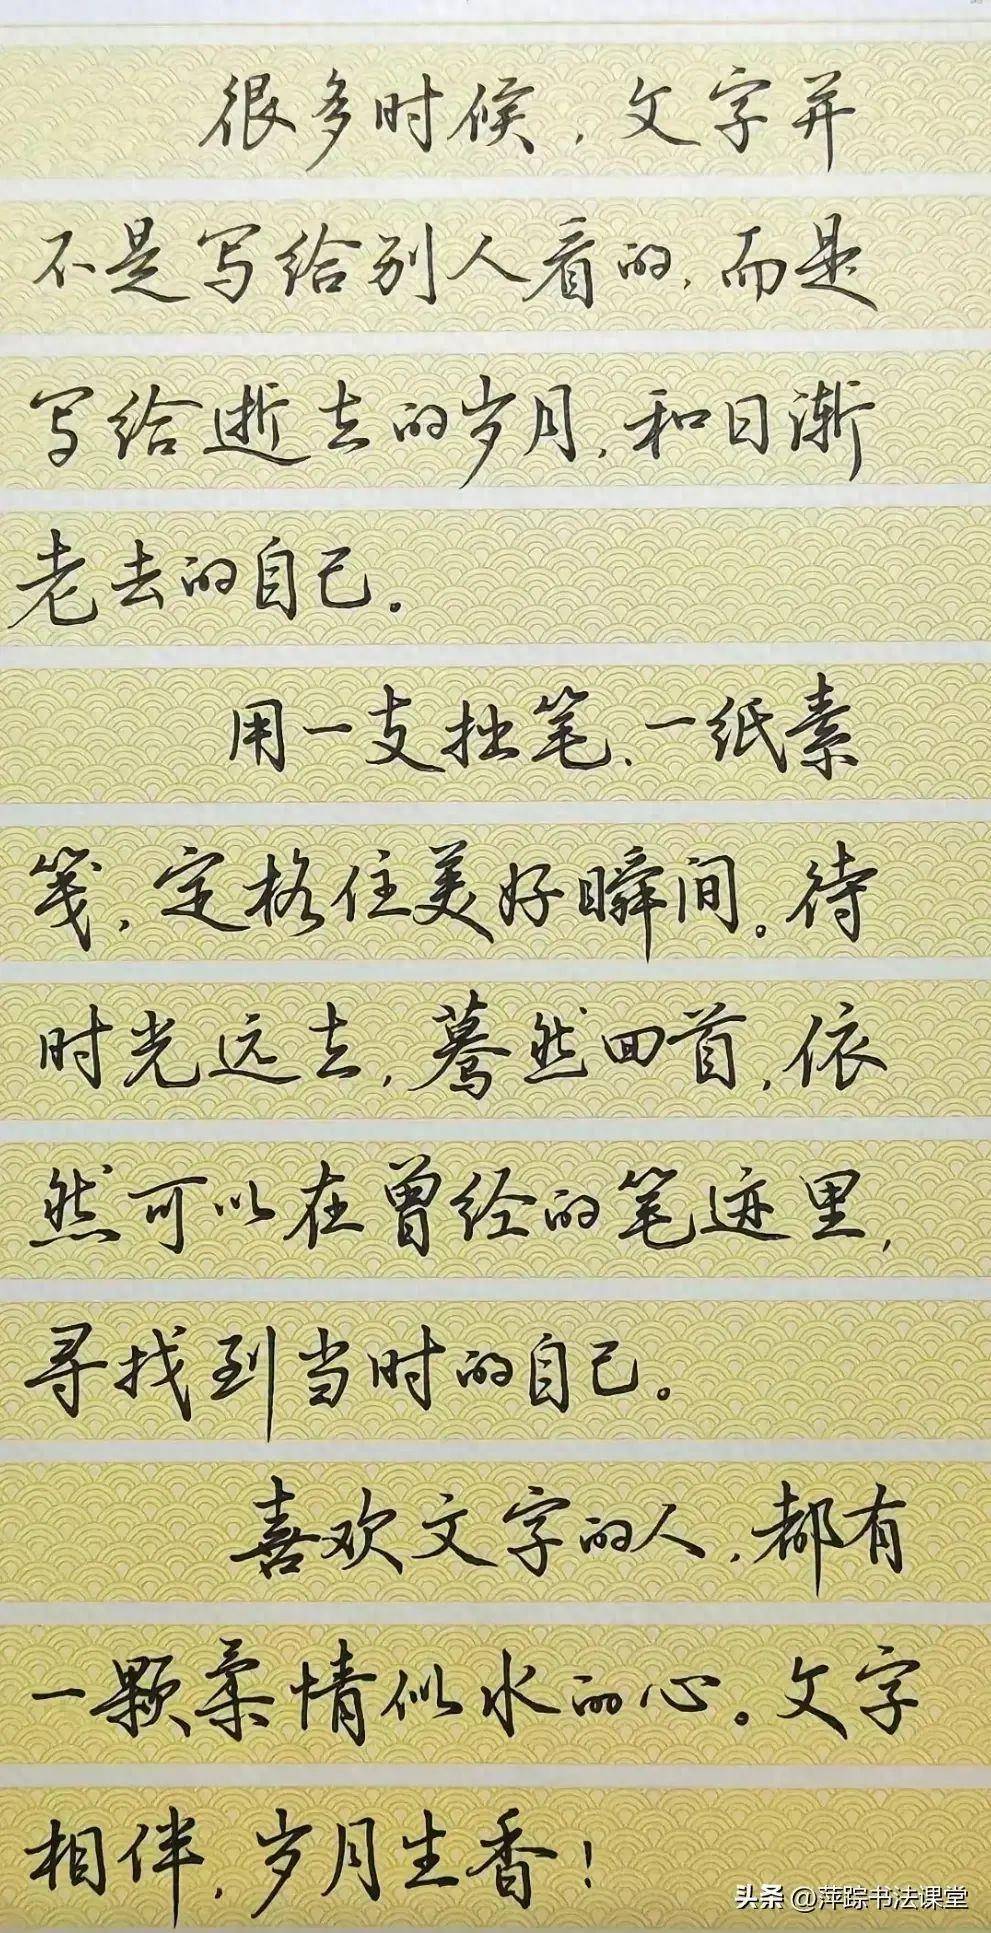 很多时候，文字并
不是写给别人看的，而是
写给逝去的岁月，和日渐
老去的自己。
用一支拙笔，一纸素
笺，定格住美好瞬间。待
时光远去，蓦然回首，依
然可以在曾经的笔迹里，
寻找到当时的自己。
喜欢文字的人，都有
一颗柔情似水的心。文字
相伴，岁月生香！
头条 @萍踪书法课堂